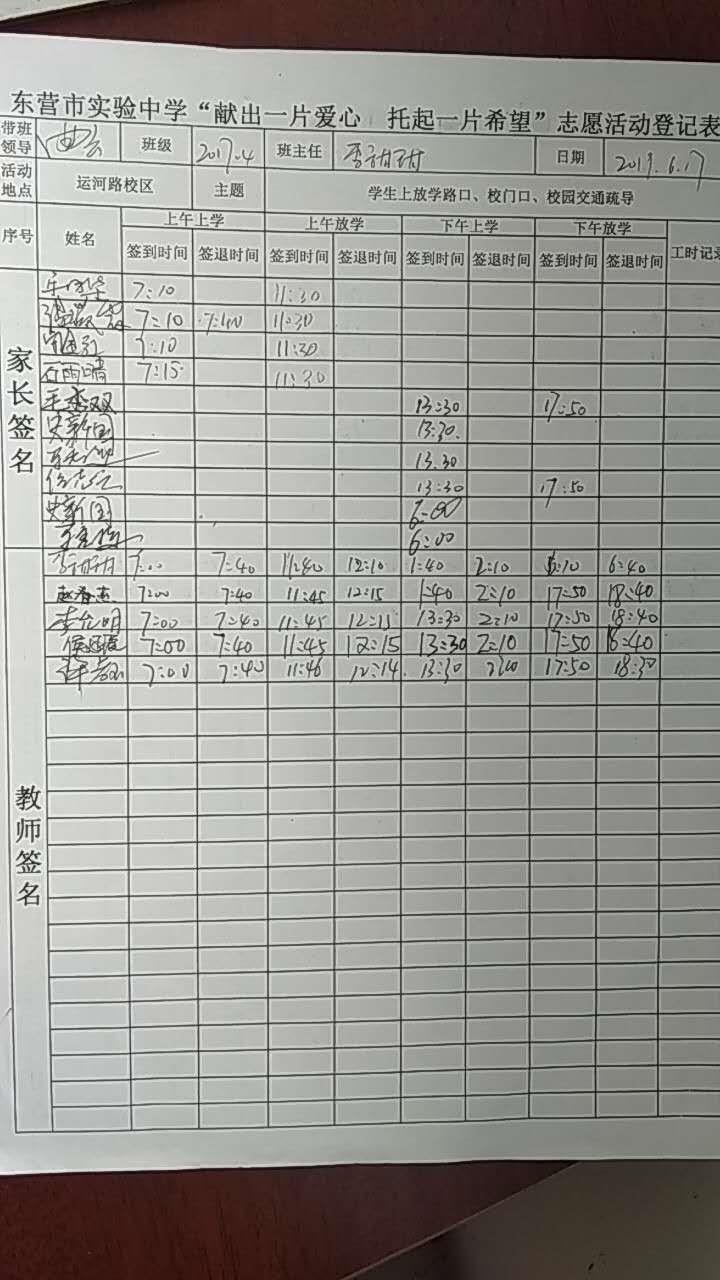 东营市实验中学“献出一片爱心 托起一片希望”志愿活动登记表
带班领导 班级 2017.4 班主任 李甜甜 日期 2019.6.17
活动地点 运河路校区 主题 学生上放学路口、校门口、校园交通疏导
序号 姓名 上午上学 上午放学 下午上学 下午放学 工时记录
签到时间 签退时间 签到时间 签退时间 签到时间 签退时间 签到时间 签退时间
家长签名
7:10 11:30
7:10 7:40 11:30
7:10 11:30
石雨晴 7:15 11:30
13:30 17:50
史新国 13:30
13:30
13:30 17:50
史新国 6:00
6:00
教师签名
李甜甜 7:00 7:40 11:40 12:10 1:40 2:10 6:40
7:00 7:40 11:45 12:15 1:40 2:10 17:50 18:40
7:00 7:40 11:45 12:15 13:30 2:10 17:50 18:40
7:00 7:40 11:45 12:15 13:30 2:10 17:50 18:40
7:00 7:40 11:46 12:14 13:30 2:10 17:50 18:30